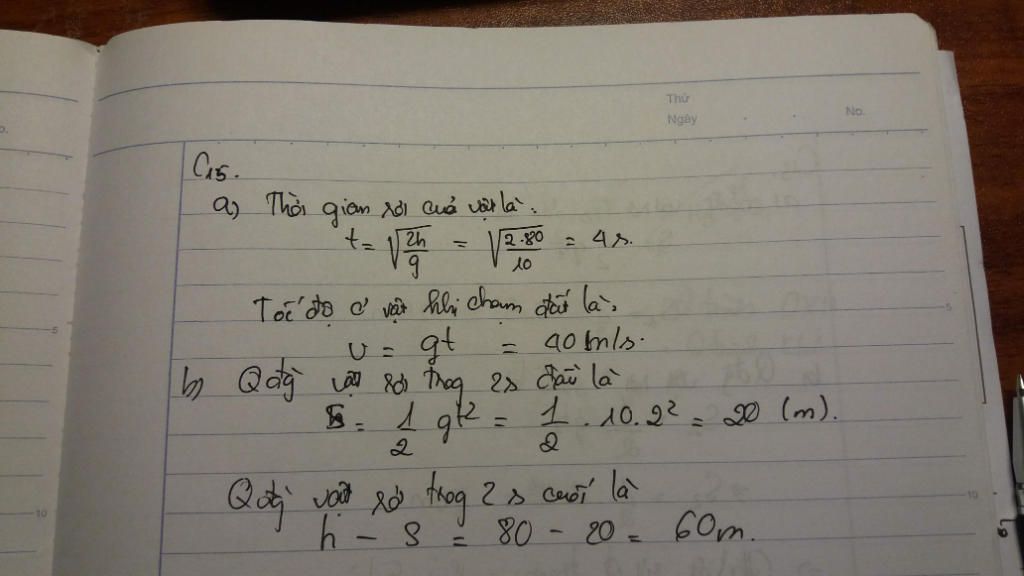 Thứ
Ngày
No.
C15.
a) Thời gian rơi của vật là:
t = √(2h/g) = √(2.80/10) = 4s.
Tốc độ c vật khi chạm đất là:
v = gt = 40m/s.
b) Qđg vật rơi trog 2s đầu là
S = 1/2 gt² = 1/2 . 10.2² = 20 (m).
Qđg vật rơi trog 2s cuối là
h - S = 80 - 20 = 60m.
5
10
5
10